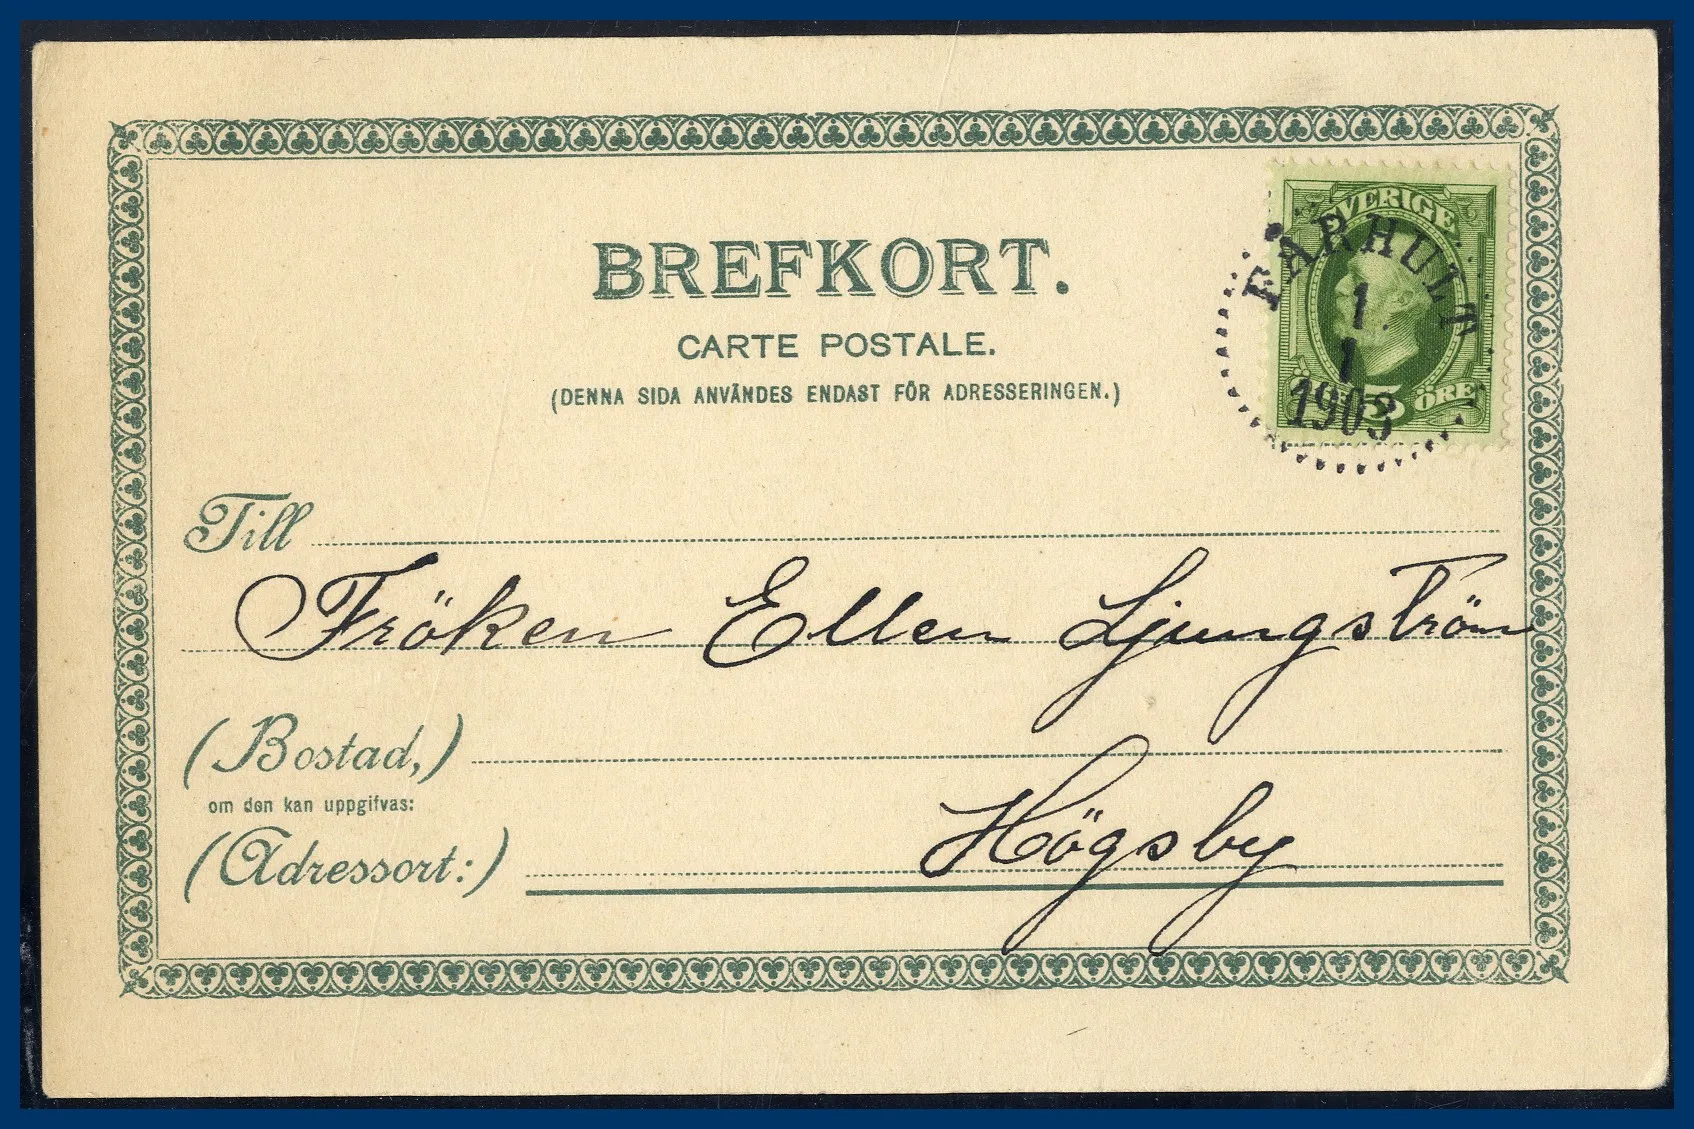 BREFKORT.
CARTE POSTALE.
(DENNA SIDA ANVÄNDES ENDAST FÖR ADRESSERINGEN.)
SVERIGE
5 ÖRE
FARHULT
1.
1
1903
Till
Fröken Ellen Ljungström
(Bostad,)
om den kan uppgifvas:
(Adressort:)
Högsby